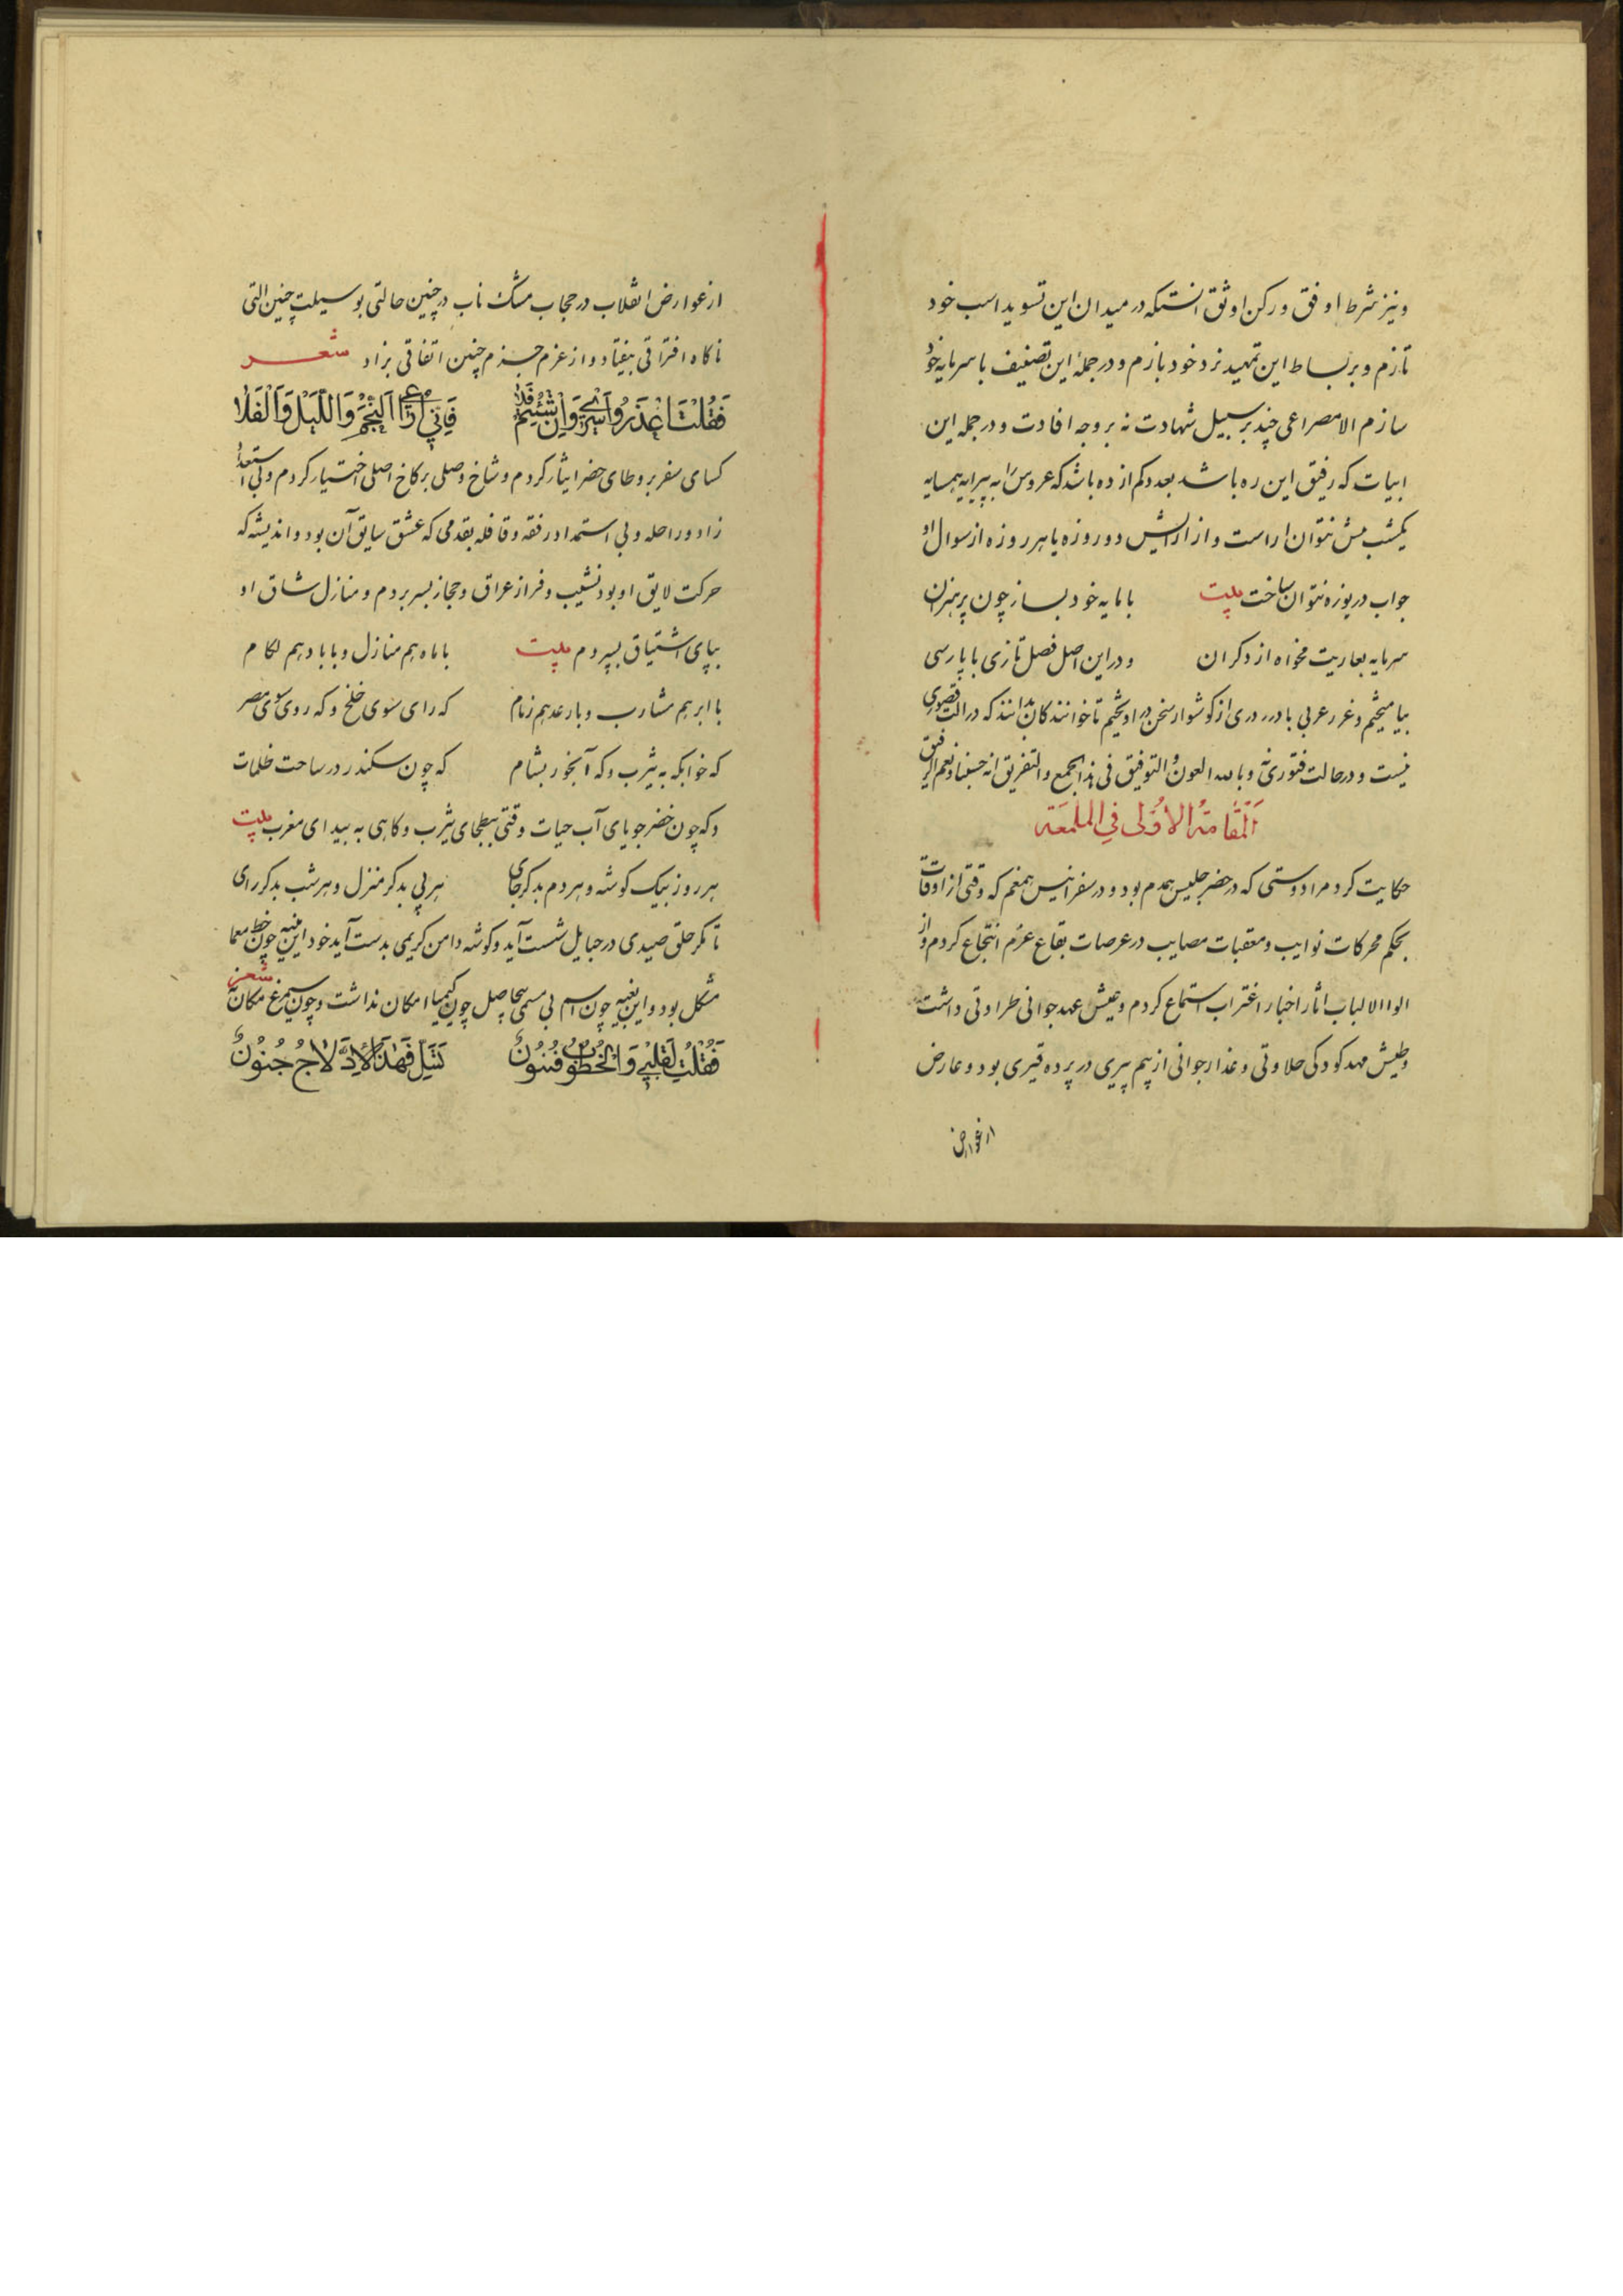 ونیز شرط اوفق و رکن اوثق انستکه در میدان این تسوید اسب خود
تازم و بر بساط این تمهید نرد خود بازم و در جملهٔ این تصنیف با سرمایه خود
سازم الا مصراعی چند بر سبیل شهادت نه بر وجه افادت و در جمله این
ابیات که رفیق این ره باشد بعدد کم از ده باشد که عروس را به پیرایه همسایه
یکشب بیش نتوان اراست و از ارایش دو روزه یا هر روزه از سوال او
جواب دریوزه نتوان ساخت بیت با مایه خود بساز چون پر هنران
سرمایه بعاریت مخواه از دکران ودر این اصل فصل تازی با پارسی
بیامیختم و غرر عربی با درر دری از کوشوار سخن در اویختم تا خوانندکان بدانند که در الت قصوری
نیست و در حالت فتوری نه وبالله العون والتوفیق فی هذا الجمع والتفریق انه حسبنا ونعم الرفیق
اَلْمَقامَةُ الاُولی فی الملمعة
حکایت کرد مرا دوستی که در حضر جلیس همدم بود و در سفر انیس همغم که وقتی از اوقات
بحکم محرکات نوایب و معقبات مصایب در عرصات بقاع عزم انتجاع کردم و از
الواالالباب اثار اخبار اغتراب استماع کردم و عیش عهد جوانی طراوتی داشت
وطیش مهد کودکی حلاوتی و عذار جوانی از بیم پیری در پرده قیری بود و عارض
از عوارض
از عوارض انقلاب در حجاب مشک ناب در چنین حالتی بوسیلت چنین التی
ناکاه افتراقی بیفتاد و از عزم جزم چنین اتفاقی بزاد شعر
فَقُلْتُ اعْذَرُوا اَسْرِی وَاِنْ شِئْتُمْ فَلا فَاِنّی اُرَاعِی اَلنَّجْمَ وَاللَّیْلَ وَاَلْفَلَا
کسای سفر بر وطای حضر ایثار کردم و شاخ وصلی بر کاخ اصلی اختیار کردم و بی استعداد
زاد و راحله و بی استمداد رفقه و قافله بقدمی که عشق سایق آن بود و اندیشه که
حرکت لایق او بود نشیب و فراز عراق و حجاز بسر بردم و منازل شاق او
بپای اشتیاق بسپردم بیت با ماه هم منازل و با باد هم لکام
با ابر هم مشارب و با رعد هم زمام که رای سوی خلخ و که روی سوی مصر
که خوابکه به یثرب و که آبخور بشام که چون سکندر در ساحت ظلمات
و که چون خضر جویای آب حیات وقتی ببطحای یثرب و کاهی به بیدای مغرب بیت
هر روز بیک کوشه و هر دم بدکر جای هر پی بدکر منزل و هر شب بدکر رای
تا مکر حلق صیدی در حبایل شست آید و کوشه دامن کریمی بدست آید خود این منیه چون خط معما
مشکل بود و این بغیه چون اسم بی مسمی بیحاصل چون کیمیا امکان نداشت و چون سیمرغ مکان نه شعر
فَقُلْتُ لِقَلْبِی وَالْخُطُوبُ فُنُونٌ تَسَلَّ فَهٰذَا الاِدِّلاجُ جُنُونٌ